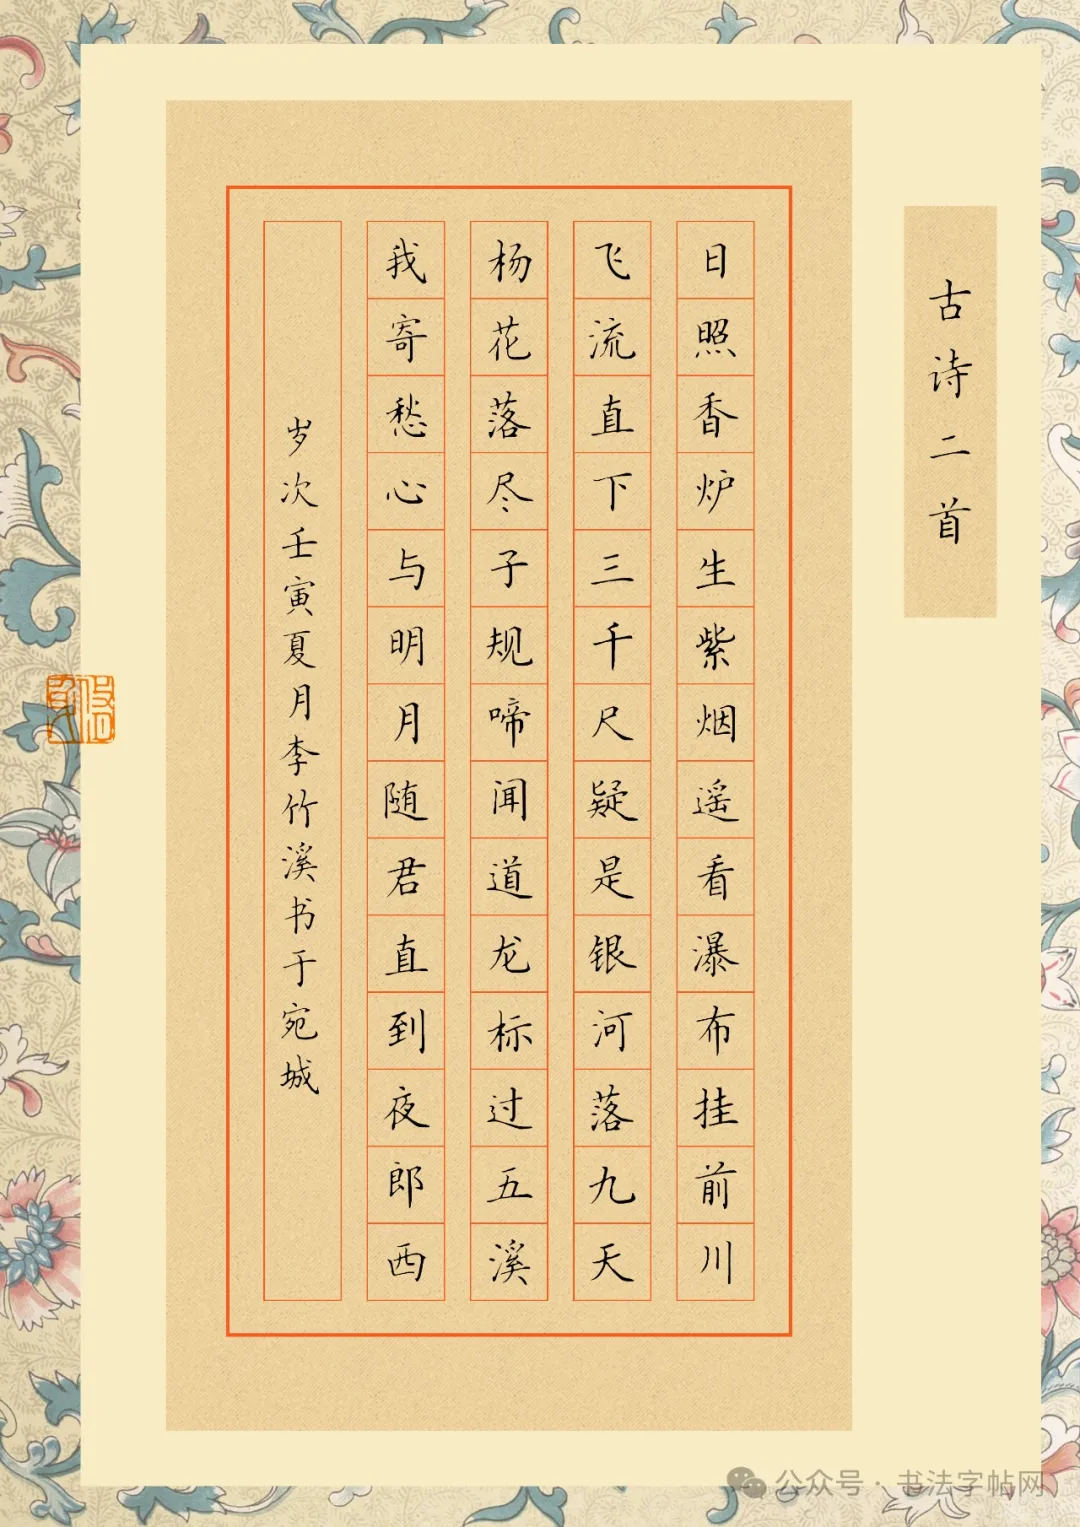 古诗二首
日照香炉生紫烟遥看瀑布挂前川
飞流直下三千尺疑是银河落九天
杨花落尽子规啼闻道龙标过五溪
我寄愁心与明月随君直到夜郎西
岁次壬寅夏月李竹溪书于宛城
公众号·书法字帖网